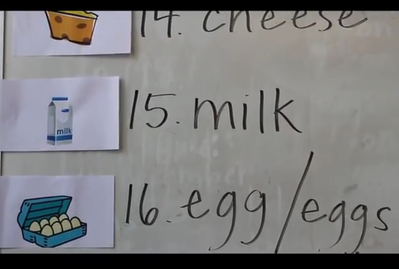 14. cheese
15. milk
milk
16. egg/eggs